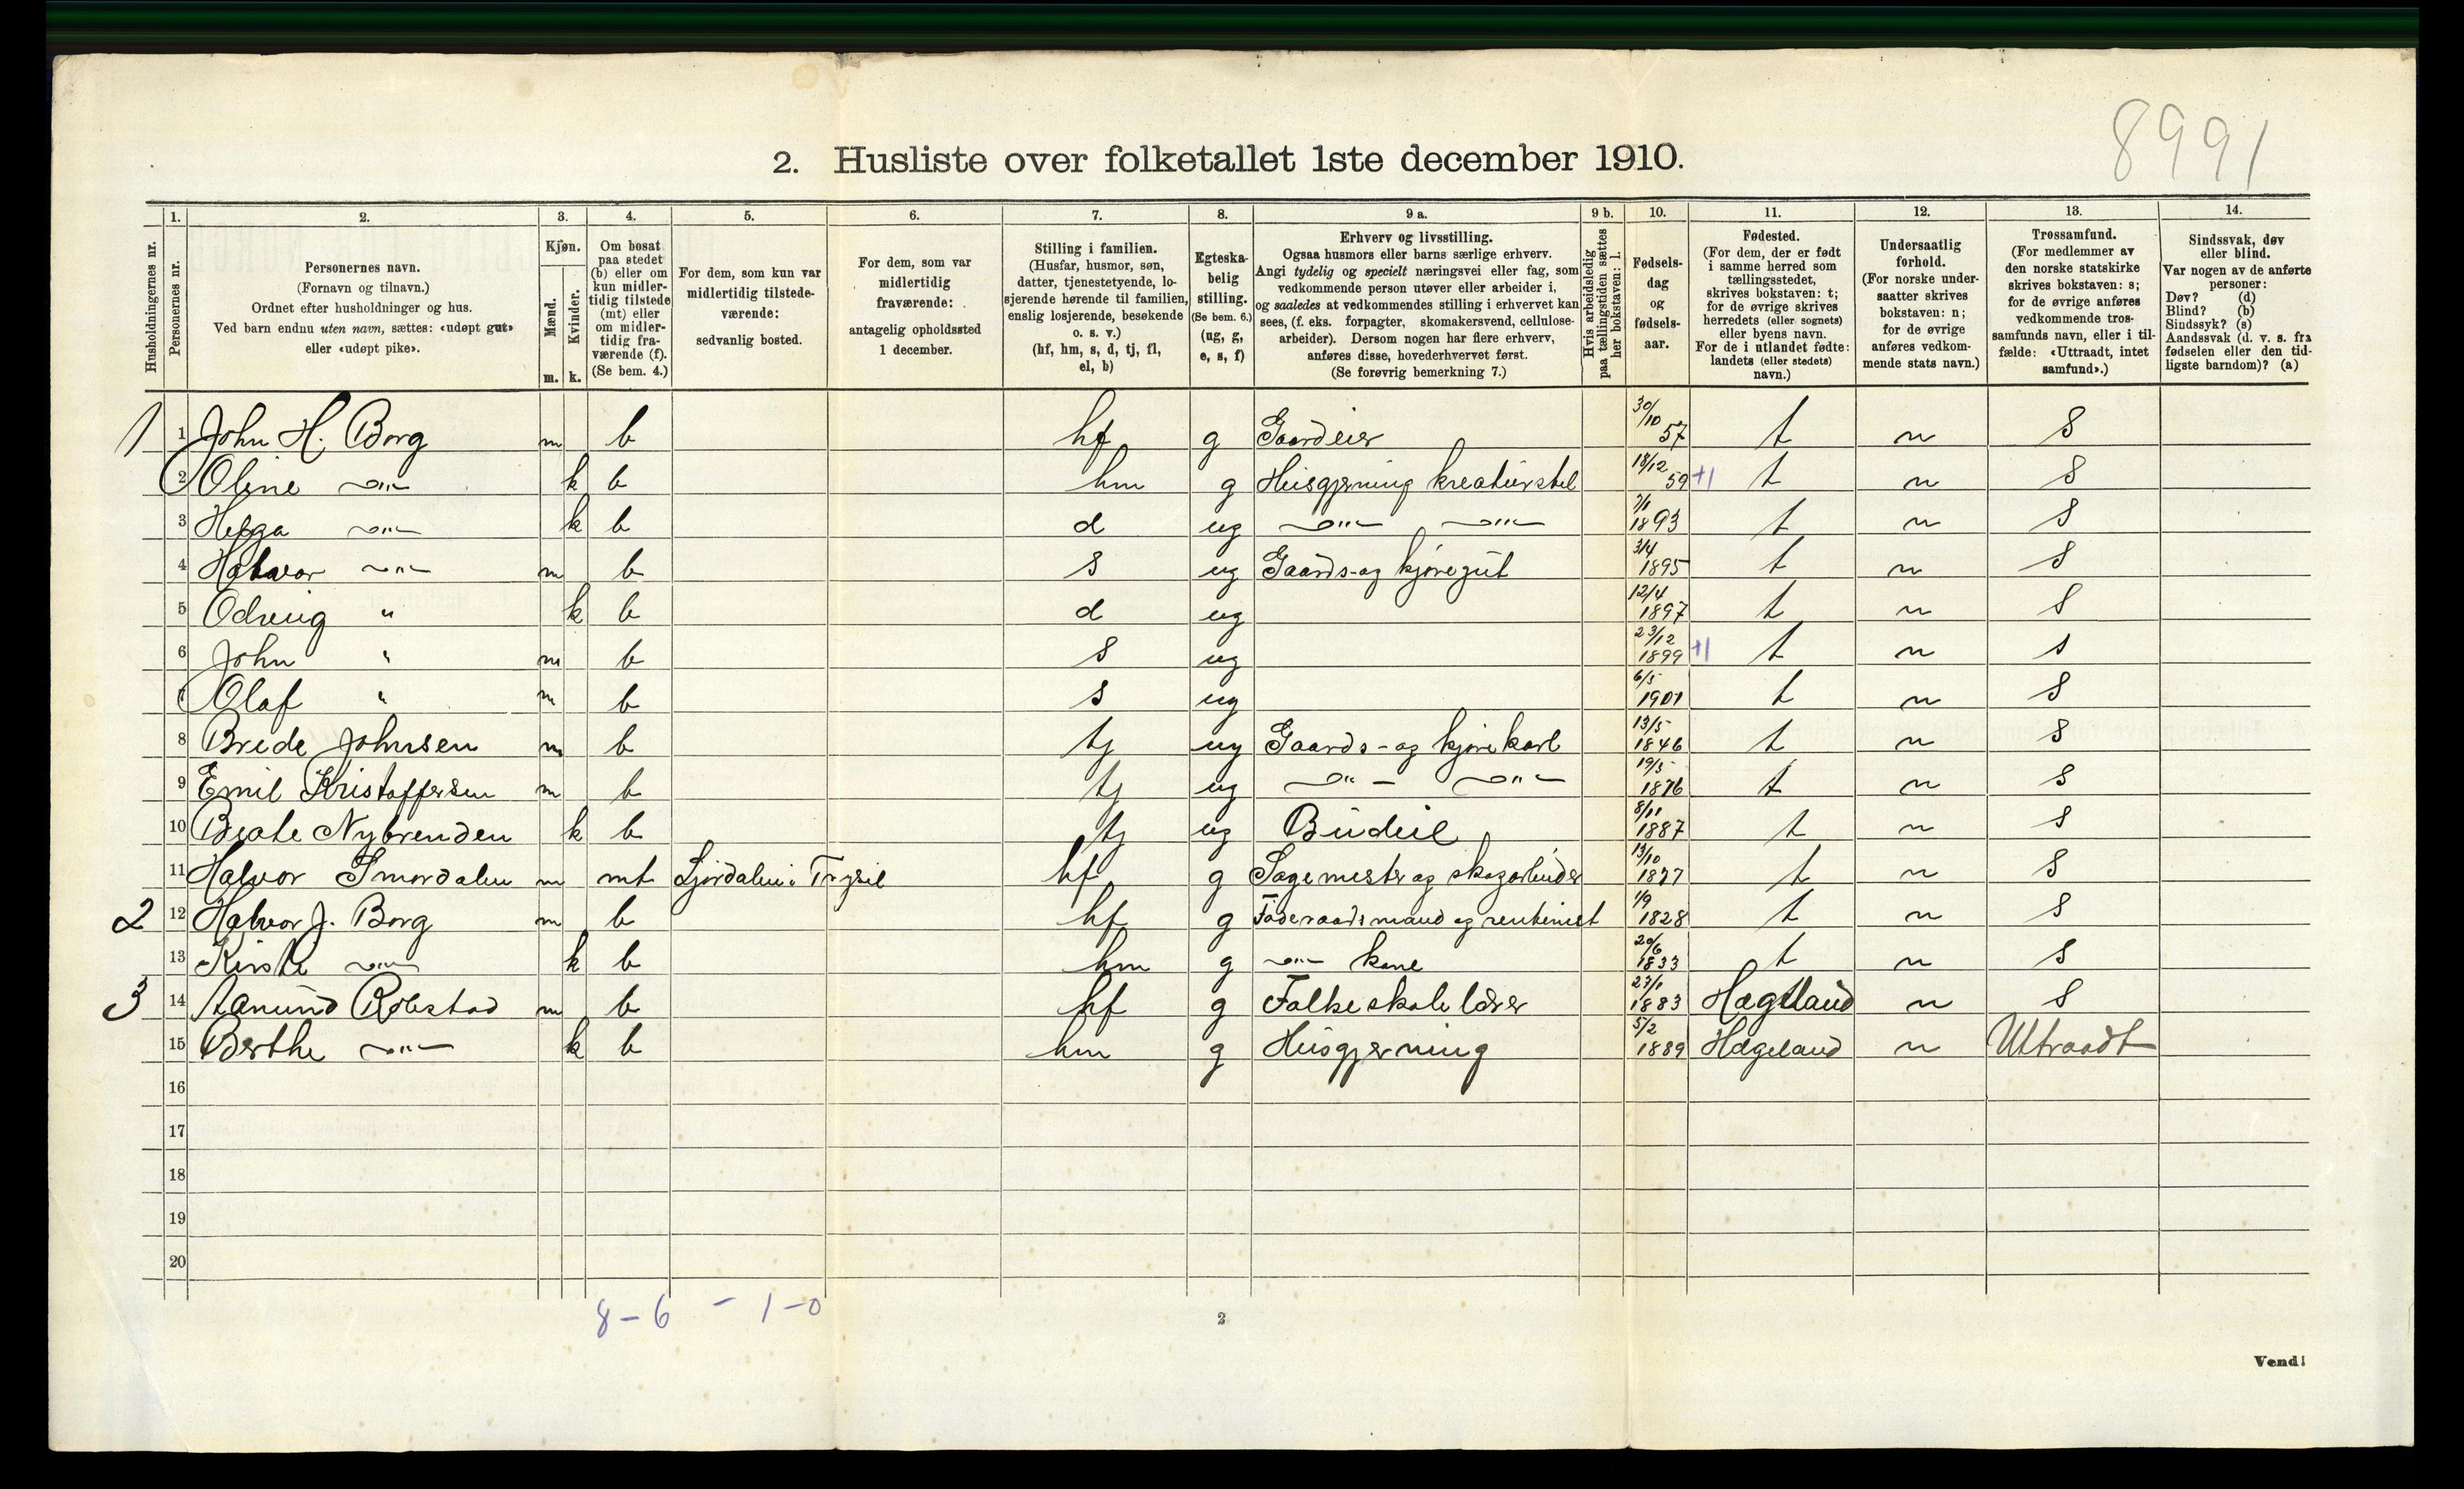 8991
2. Husliste over folketallet 1ste december 1910.
Husholdningernes nr.
1.
Personernes nr.
2.
Personernes navn.
(Fornavn og tilnavn.)
Ordnet efter husholdninger og hus.
Ved barn endnu uten navn, sættes: «udøpt gut»
eller «udøpt pike».
3.
Kjøn.
Mænd.
Kvinder.
m. k.
4.
Om bosat
paa stedet
(b) eller om
kun midler-
tidig tilstede
(mt) eller
om midler-
tidig fra-
værende (f).
(Se bem. 4.)
5.
For dem, som kun var
midlertidig tilstede-
værende:
sedvanlig bosted.
6.
For dem, som var
midlertidig
fraværende:
antagelig opholdssted
1 december.
7.
Stilling i familien.
(Husfar, husmor, søn,
datter, tjenestetyende, lo-
sjerende hørende til familien,
enslig losjerende, besøkende
o. s. v.)
(hf, hm, s, d, tj, fl,
el, b)
8.
Egteska-
belig
stilling.
(Se bem. 6.)
(ug, g,
e, s, f)
9 a.
Erhverv og livsstilling.
Ogsaa husmors eller barns særlige erhverv.
Angi tydelig og specielt næringsvei eller fag, som
vedkommende person utøver eller arbeider i,
og saaledes at vedkommendes stilling i erhvervet kan
sees, (f. eks. forpagter, skomakersvend, cellulose-
arbeider). Dersom nogen har flere erhverv,
anføres disse, hovederhvervet først.
(Se forøvrig bemerkning 7.)
9 b.
Hvis arbeidsledig
paa tællingstiden sættes
her bokstaven: l.
10.
Fødsels-
dag
og
fødsels-
aar.
11.
Fødested.
(For dem, der er født
i samme herred som
tællingsstedet,
skrives bokstaven: t;
for de øvrige skrives
herredets (eller sognets)
eller byens navn.
For de i utlandet fødte:
landets (eller stedets)
navn.)
12.
Undersaatlig
forhold.
(For norske under-
saatter skrives
bokstaven: n;
for de øvrige
anføres vedkom-
mende stats navn.)
13.
Trossamfund.
(For medlemmer av
den norske statskirke
skrives bokstaven: s;
for de øvrige anføres
vedkommende tros-
samfunds navn, eller i til-
fælde: «Uttraadt, intet
samfund».)
14.
Sindssvak, døv
eller blind.
Var nogen av de anførte
personer:
Døv? (d)
Blind? (b)
Sindssyk? (s)
Aandssvak (d. v. s. fra
fødselen eller den tid-
ligste barndom)? (a)
1 1 John H. Borg m b hf g Gaardeier 30/10 57 t n S
2 Oline —"— k b hm g Husgjerning kreaturstel 18/12 59 +1 t n S
3 Helga —"— k b d ug —"— —"— 7/1 1893 t n S
4 Halvor —"— m b s ug Gaards- og kjøregut 3/4 1895 t n S
5 Odveig " k b d ug 12/4 1897 t n S
6 John " m b s ug 23/12 1899 +1 t n s
7 Olaf " m b s ug 6/5 1901 t n S
8 Brede Johnsen m b tj ug Gaards- og kjørekarl 13/5 1846 t n S
9 Emil Kristoffersen m b tj ug —"— —"— 19/5 1876 t n S
10 Beate Nybrenden k b tj ug Budeie 8/11 1887 t n S
11 Halvor Smordalen m mt Ljørdalen i Trysil hf g Sagemester og skogarbeider 13/10 1877 t n S
2 12 Halvor J. Borg m b hf g Føderaadsmand og rentenist 1/9 1828 t n S
13 Kirsti —"— k b hm g —"— kone 20/6 1833 t n S
3 14 Aanund Robstad m b hf g Folkeskolelærer 27/1 1883 Hægeland n S
15 Berthe —"— k b hm g Husgjerning 5/2 1889 Hægeland n Uttraadt
16
17
18
19
20
8 - 6 - 1 - 0
2
Vend!